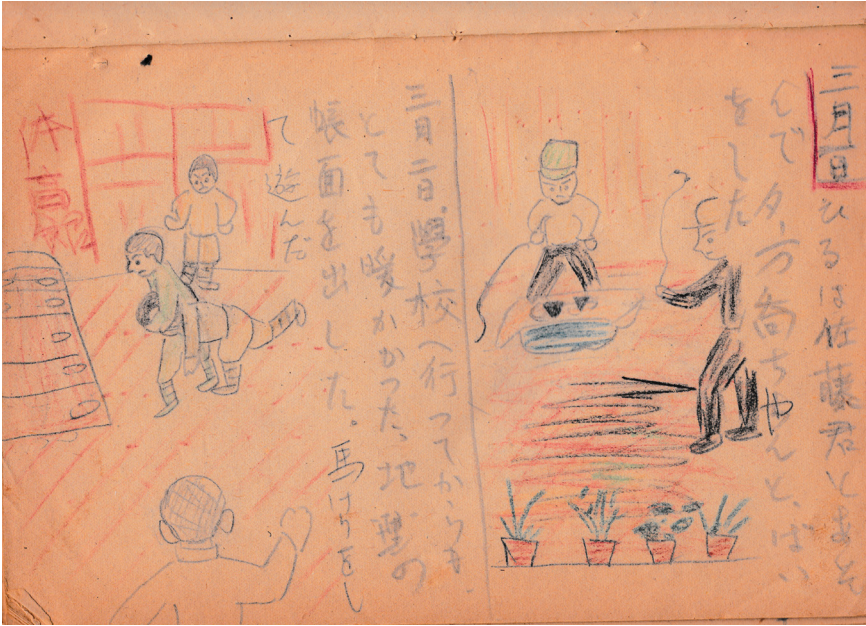 三月一日ひるは佐藤君とあそ
んで夕方喬ちやんと、ばい
をした
三月二日、學校へ行つてからも、
とても暖かかつた、地理の
帳面を出した。馬けりをし
て遊んだ
体育館